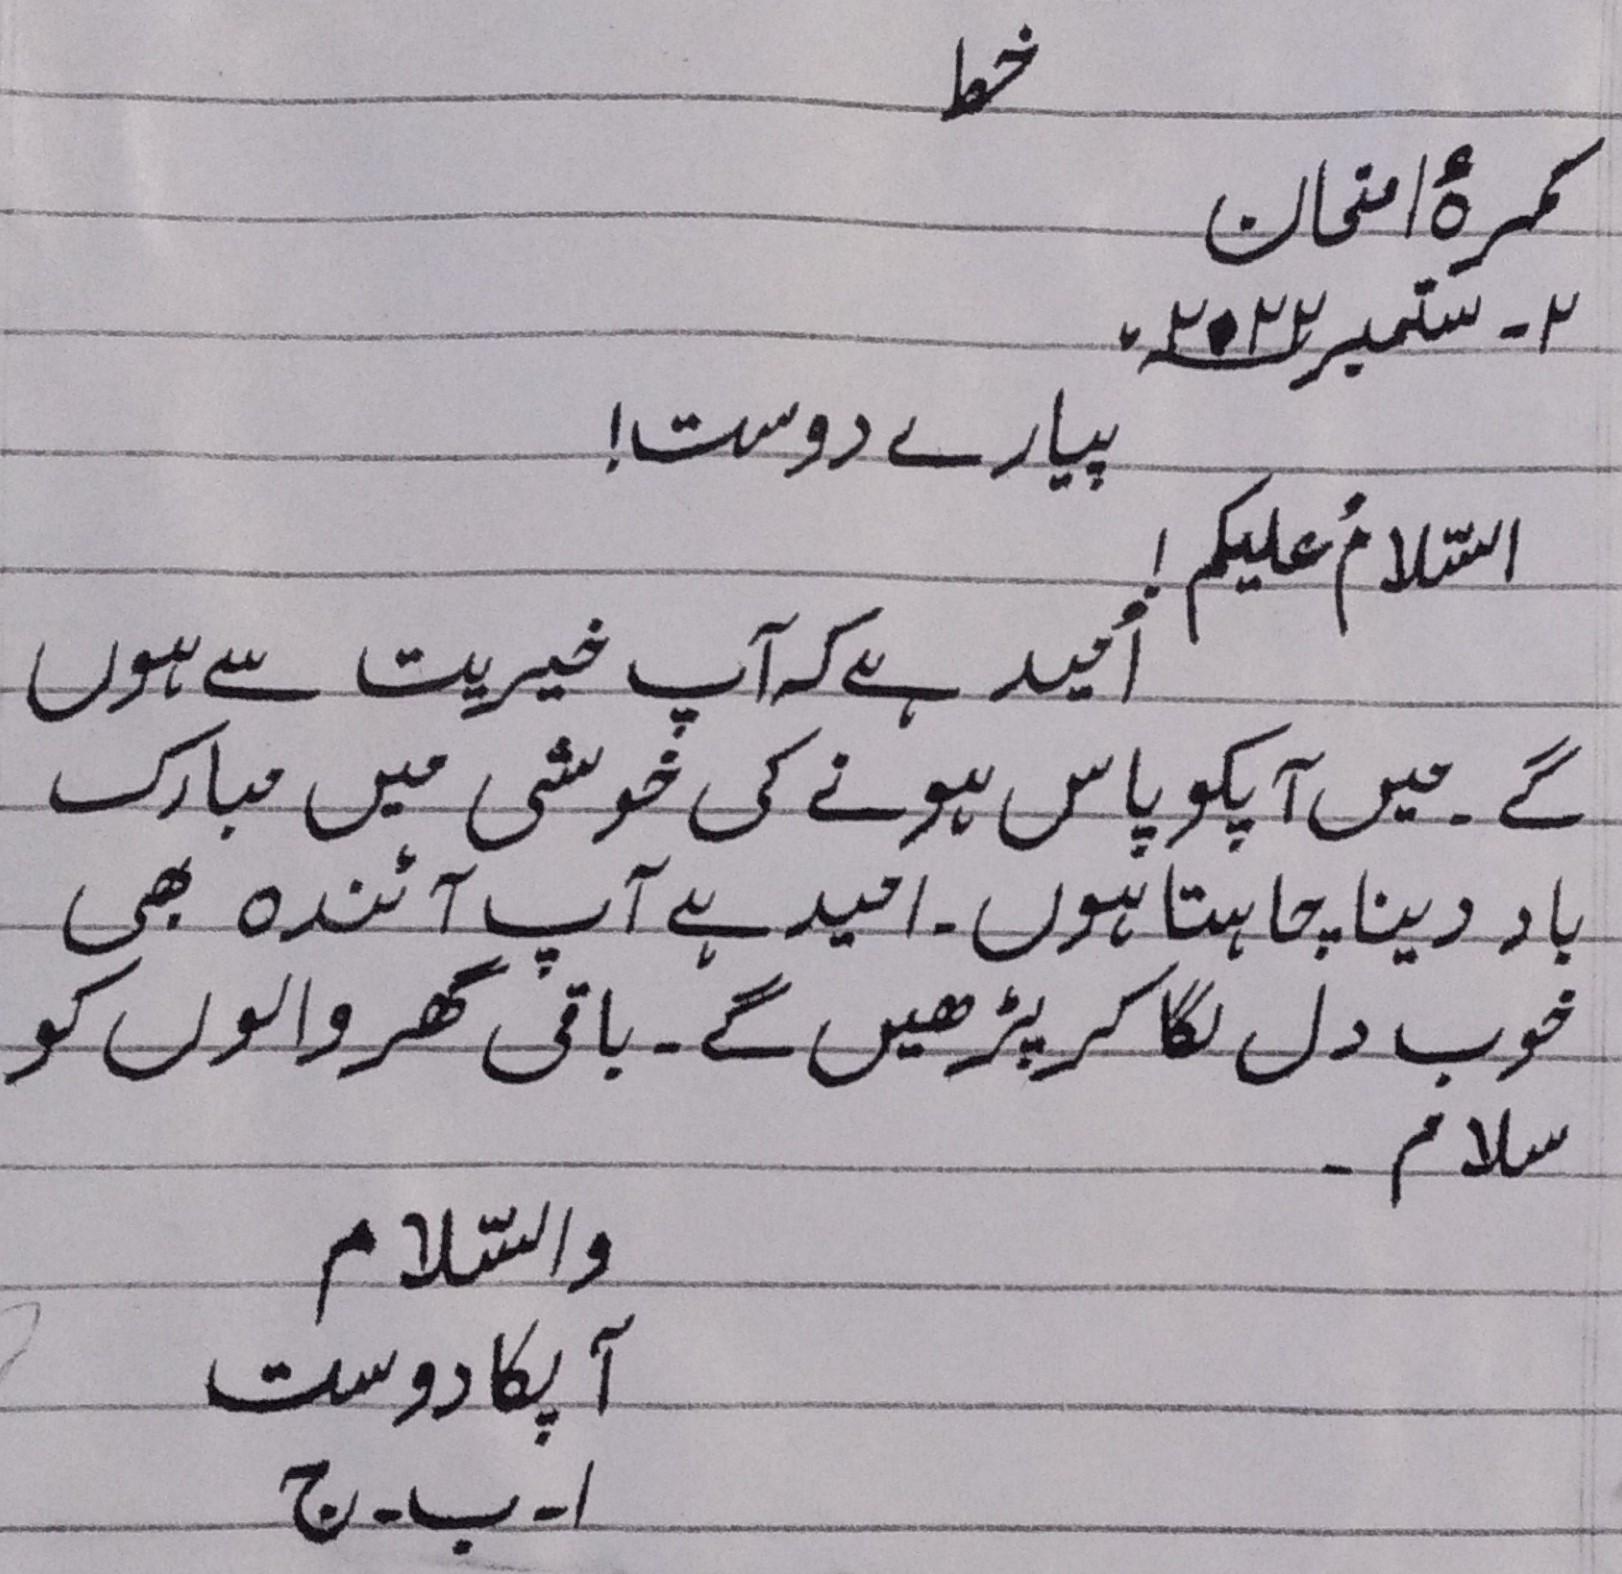 خط
کمرۂ امتحان
۲ ۔ ستمبر ۲۰۲۲؁ء
پیارے دوست!
السّلامُ علیکم!
اُمید ہے کہ آپ خیریت سے ہوں
گے ۔ میں آپکو پاس ہونے کی خوشی میں مبارک
باد دینا چاہتا ہوں ۔ امید ہے آپ آئندہ بھی
خوب دل لگا کر پڑھیں گے ۔ باقی گھر والوں کو
سلام ۔
والسّلام
آپکا دوست
ا ۔ ب ۔ ج